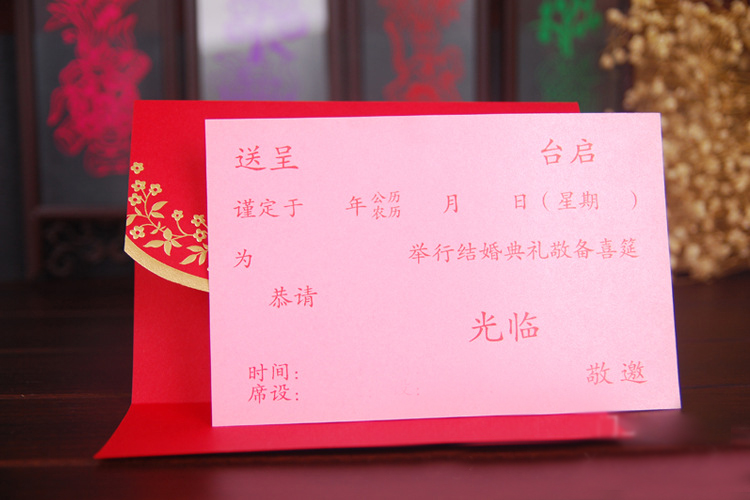 送呈 台启
谨定于 年 公历 农历 月 日（星期 ）
为 举行结婚典礼敬备喜筵
恭请
光临
时间： 敬邀
席设：